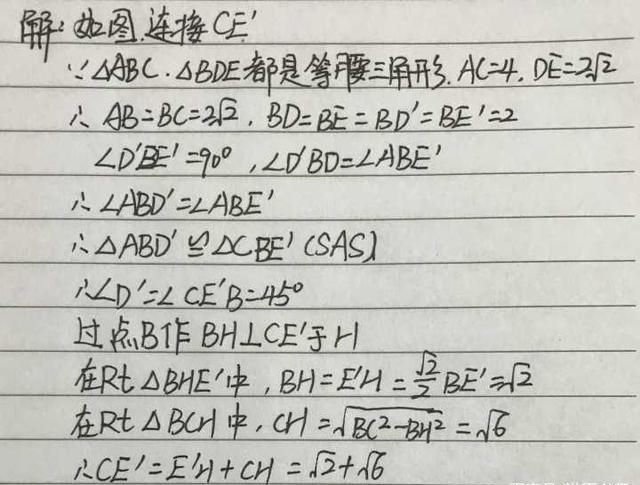 解：如图.连接CE'
∵△ABC.△BDE都是等腰三角形.AC=4.DE=2√2
∴ AB=BC=2√2．BD=BE=BD'=BE'=2
∠D'BE'=90°，∠D'BD=∠ABE'
∴∠ABD'=∠ABE'
∴△ABD'≌△CBE'(SAS)
∴∠D'=∠CE'B=45°
过点B作BH⊥CE'于H
在Rt△BHE'中，BH=E'H=√2/2BE'=√2
在Rt△BCH中，CH=√(BC²-BH²)=√6
∴CE'=E'H+CH=√2+√6